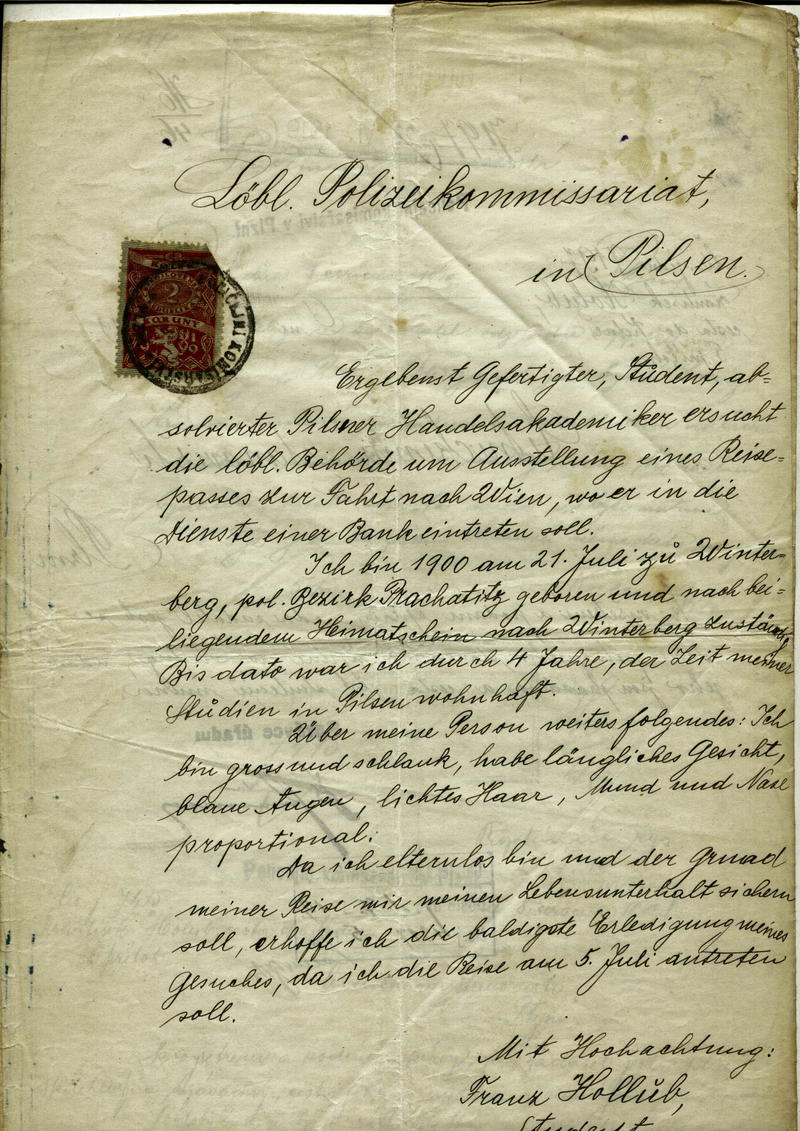 Löbl. Polizeikommissariat,
in Pilsen.
2
KORUNY
Ergebenst Gefertigter, Student, ab=
solvierter Pilsner Handelsakademiker ersucht
die löbl. Behörde um Ausstellung eines Reise=
passes zur Fahrt nach Wien, wo er in die
Dienste einer Bank eintreten soll.
Ich bin 1900 am 21. Juli zu Winter=
berg, pol. Bezirk Prachatitz geboren und nach bei=
liegendem Heimatschein nach Winterberg zuständig.
Bis dato war ich durch 4 Jahre, der Zeit meiner
Studien in Pilsen wohnhaft.
Über meine Person weiters folgendes: Ich
bin gross und schlank, habe längliches Gesicht,
blaue Augen, lichtes Haar, Mund und Nase
proportional.
Da ich elternlos bin und der Grund
meiner Reise mir meinen Lebensunterhalt sichern
soll, erhoffe ich die baldigste Erledigung meines
Gesuches, da ich die Reise am 5. Juli antreten
soll.
Mit Hochachtung:
Franz Hollub,
Student